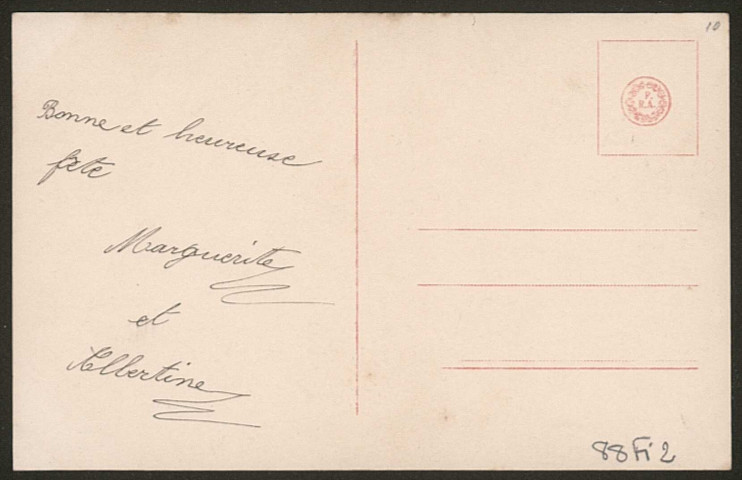 Bonne et heureuse
fête
Marguerite
et
Albertine
10
F.
R.A.
88 Fi 2